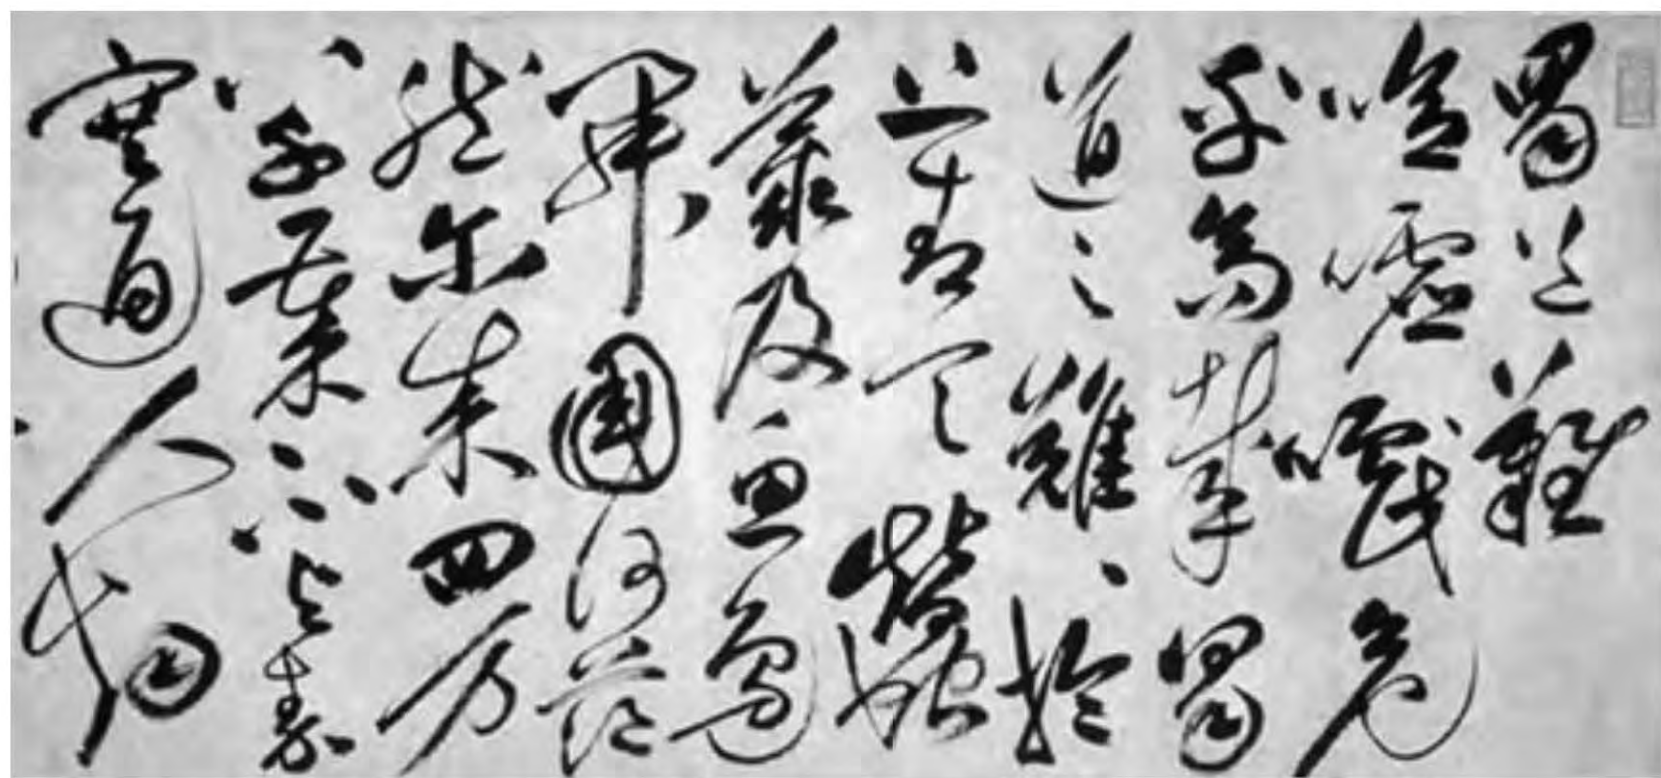 蜀道難
噫噓嚱危
乎高哉蜀
道之難、於
上青天蠶
叢及魚鳧
開國何茫
然尔来四万
八千歲不与秦
塞通人烟